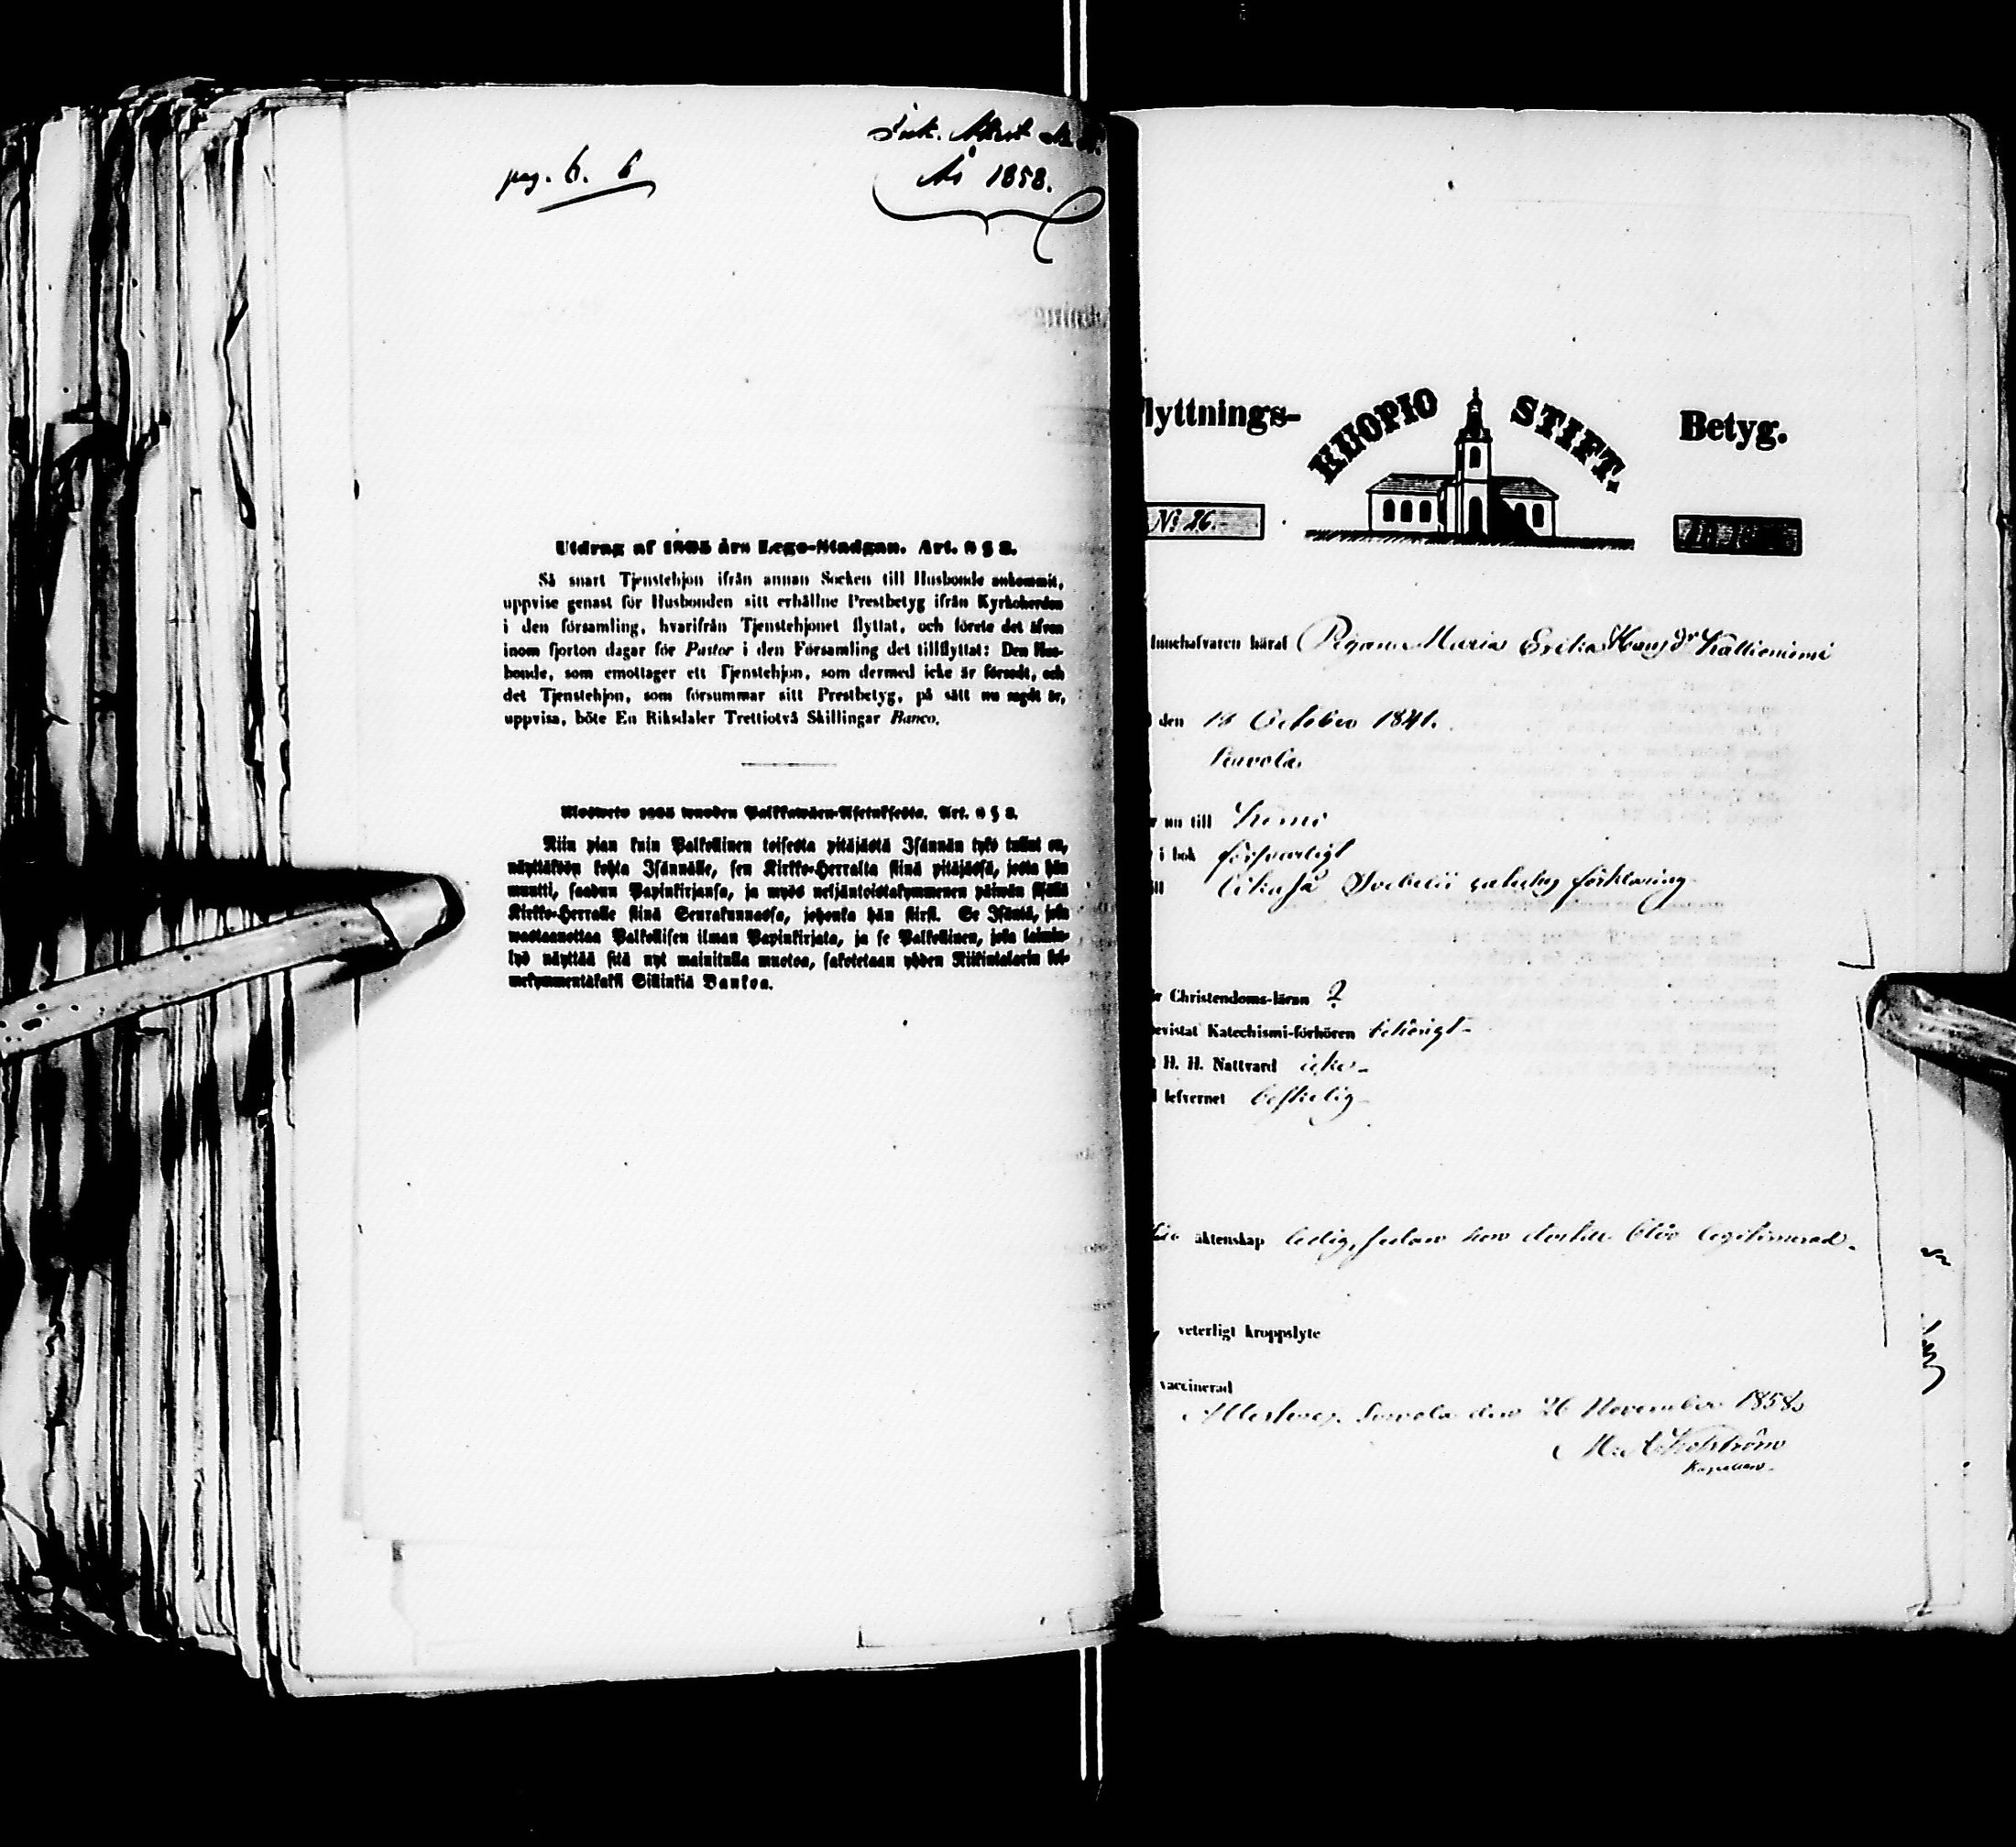 pag. 6. 6
År 1858.
Utdrag af 1805 års Lego-Stadgan. Art. 6 § 8.
Så snart Tjenstehjon ifrån annan Socken till Husbonde ankommit,
uppvise genast för Husbonden sitt erhållne Prestbetyg ifrån Kyrkoherden
i den församling, hvarifrån Tjenstehjonet flyttat, och förete det äfven
inom fjorton dagar för Pastor i den Församling det tillflyttat: Den Hus-
bonde, som emottager ett Tjenstehjon, som dermed icke är försedt, och
det Tjenstehjon, som försummar sitt Prestbetyg, på sätt nu sagdt är,
uppvisa, böte En Riksdaler Trettiotvå Skillingar Banco.
1805 wuoden Palkkawäen-Asetuksesta. Art. 6 § 8.
Niin pian kuin Palkollinen toisesta pitäjästä Isännän tykö tullut on,
näyttäköön kohta Isännälle, sen Kirkko-Herralta siinä pitäjässä, josta hän
muutti, saadun Papinkirjansa, ja myös neljäntoistakymmenen päiwän sisällä
Kirkko-Herralle siinä Seurakunnassa, johonka hän siirsi. Se Isäntä, joka
wastaanottaa Palkollisen ilman Papinkirjata, ja se Palkollinen, joka laimin-
lyö näyttää sitä nyt mainitulla muotoa, sakotetaan yhden Riikintalarin kol-
mekymmentäkaksi Sillinkiä Bankoa.
lyttnings- KUOPIO STIFT. Betyg.
No 26.
Innehafvaren häraf Pigan Maria Erika Hansdr Kallioniemi
den 18 October 1841.
Simola
nu till Kemi
i bok försvarligt
lika så Svebelii förklaring
Christendoms-läran ?
bevistat Katechismi-förhören behörigt
H. H. Nattvard icke
lefvernet beskedlig
äktenskap ledig, sedan hon blir legitimerad.
veterligt kroppslyte
vaccinerad
Attesterar, den 26 November 1858.
Kapellan.